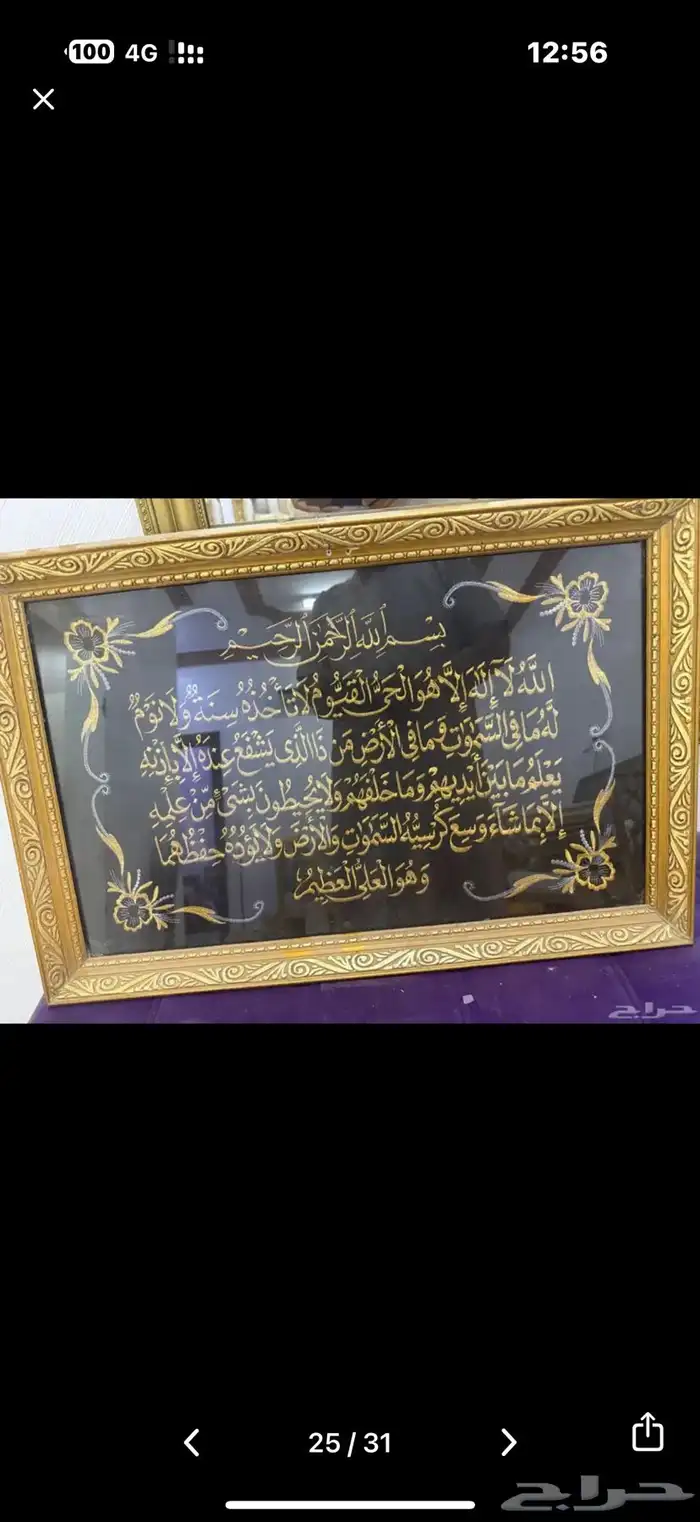 100 4G 12:56
بِسْمِ ٱللَّهِ ٱلرَّحْمَٰنِ ٱلرَّحِيمِ
اللَّهُ لَآ إِلَهَ إِلَّا هُوَ الْحَيُّ الْقَيُّومُ لَا تَأْخُذُهُ سِنَةٌ وَلَا نَوْمٌ
لَّهُ مَا فِي السَّمَٰوَٰتِ وَمَا فِي الْأَرْضِ مَن ذَا الَّذِي يَشْفَعُ عِندَهُ إِلَّا بِإِذْنِهِ
يَعْلَمُ مَا بَيْنَ أَيْدِيهِمْ وَمَا خَلْفَهُمْ وَلَا يُحِيطُونَ بِشَيْءٍ مِّنْ عِلْمِهِ
إِلَّا بِمَا شَآءَ وَسِعَ كُرْسِيُّهُ السَّمَٰوَٰتِ وَالْأَرْضَ وَلَا يَؤُدُهُ حِفْظُهُمَا
وَهُوَ الْعَلِيُّ الْعَظِيمُ
حراج
25 / 31
حراج